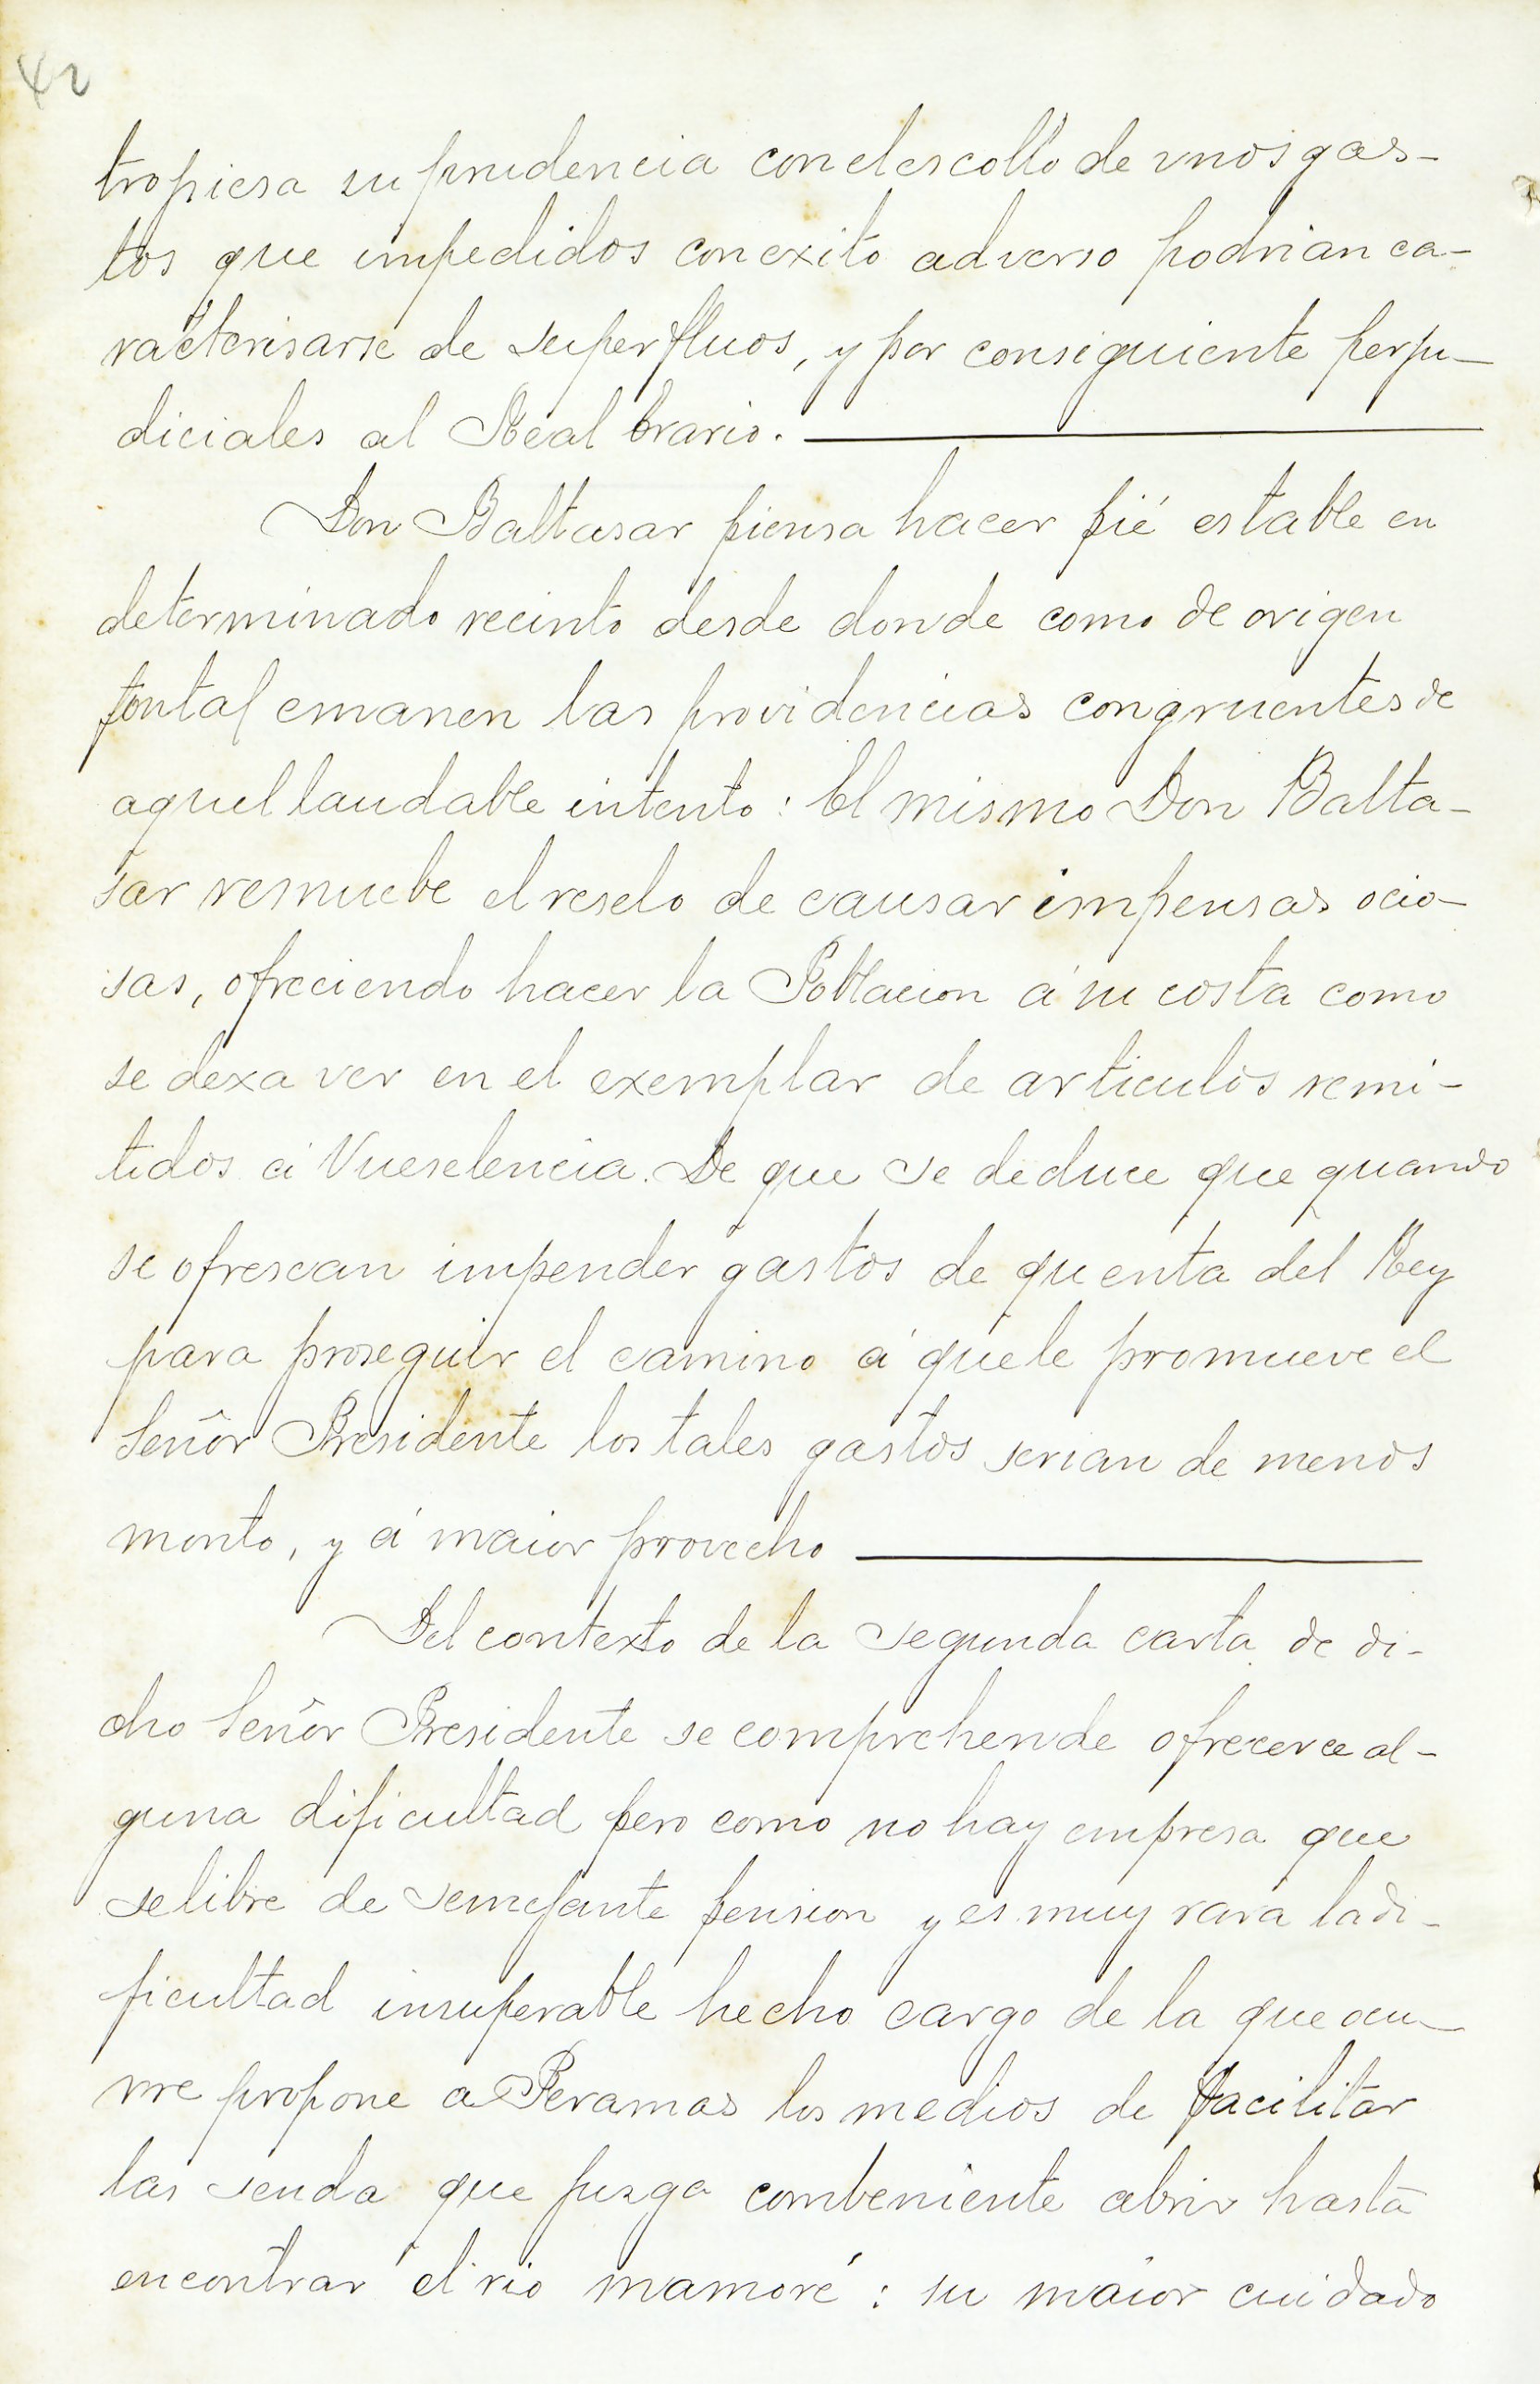 42
tropiesa su prudencia con el escollo de vnos gas-
tos que impedidos con exito adverso podrian ca-
racterisarse de superfluos, y por consiguiente perju-
diciales al Real Erario.
Don Baltasar piensa hacer pié estable en
determinado recinto desde donde como de origen
fontal emanen las providencias congruentes de
aquel laudable intento: El mismo Don Balta-
sar remuebe el reselo de causar impensas ocio-
sas, ofreciendo hacer la Poblacion á su costa como
se dexa ver en el exemplar de articulos remi-
tidos á Vueselencia. De que se deduce que quando
se ofrescan impender gastos de quenta del Rey
para proseguir el camino á que le promueve el
Señor Presidente los tales gastos serian de menos
monto, y á maior provecho
Del contexto de la segunda carta de di-
cho Señor Presidente se comprehende ofrecerce al-
guna dificultad pero como no hay empresa que
se libre de semejante pension y es muy rara la di-
ficultad insuperable hecho cargo de la que ocu-
rre propone a Peramas los medios de facilitar
las senda que juzga combeniente abrir hasta
encontrar el rio mamoré: su maior cuidado